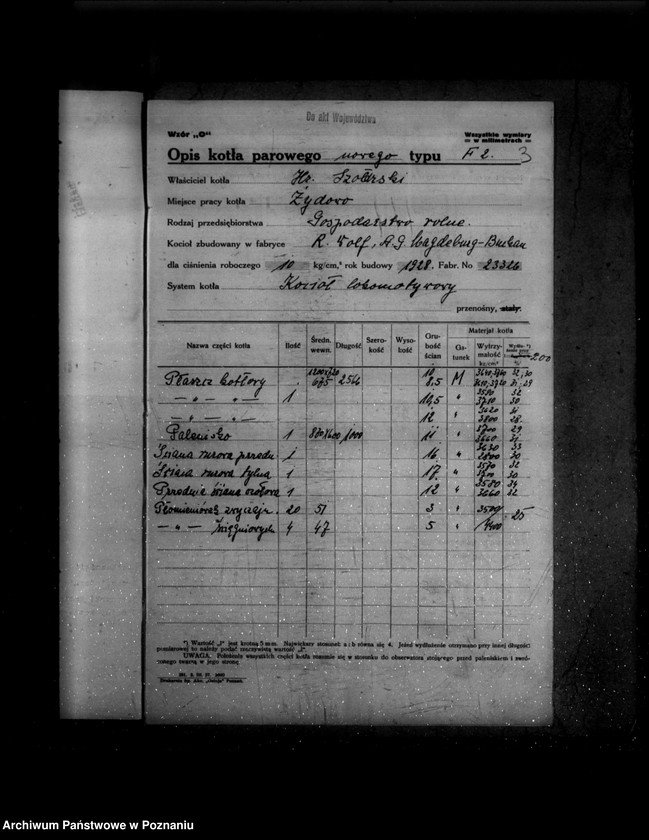 Do akt Województwa
Wzór „O"
Wszystkie wymiary
w milimetrach
Opis kotła parowego nowego typu F 2. 3
Właściciel kotła Hr. Szołdrski
Miejsce pracy kotła Żydowo
Rodzaj przedsiębiorstwa Gospodarstwo rolne.
Kocioł zbudowany w fabryce R. Wolf, A.G. Magdeburg-Buckau
dla ciśnienia roboczego 10 kg/cm² rok budowy 1928. Fabr. No 23326
System kotła Kocioł lokomotywowy
przenośny, stały.
Nazwa części kotła Ilość Średn. wewn. Długość Szerokość Wysokość Grubość ścian Materjał kotła
Gatunek Wytrzymałość kg/cm² 200
Płaszcz kotłowy 675 2564 10 8,5 M
— „ — „ — 1 10,5 „ 3710 32 30
— „ — „ — 12 „ 3620 3800 31 28
Palenisko 1 1000 11 „ 3700 3660 29 31
Ściana rurowa przednia 1 16 „ 3630 33 30
Ściana rurowa tylna 1 17 „ 3570 32 30
Przednia ściana 1 12 „ 3580 3660 34 32
Płomieniówek zwyczajn. 20 51 3 „ 3500 25
— „ — 4 47 5 „ 4400
*) Wartość „l" jest krotną 5 mm. Największy stosunek a : b równa się 4. Jeżeli wydłużenie otrzymano przy innej długości
pomiarowej to należy podać rzeczywistą wartość „l".
UWAGA. Położenie wszystkich części kotła rozumie się w stosunku do obserwatora stojącego przed paleniskiem i zwróconego
twarzą w jego stronę
Archiwum Państwowe w Poznaniu